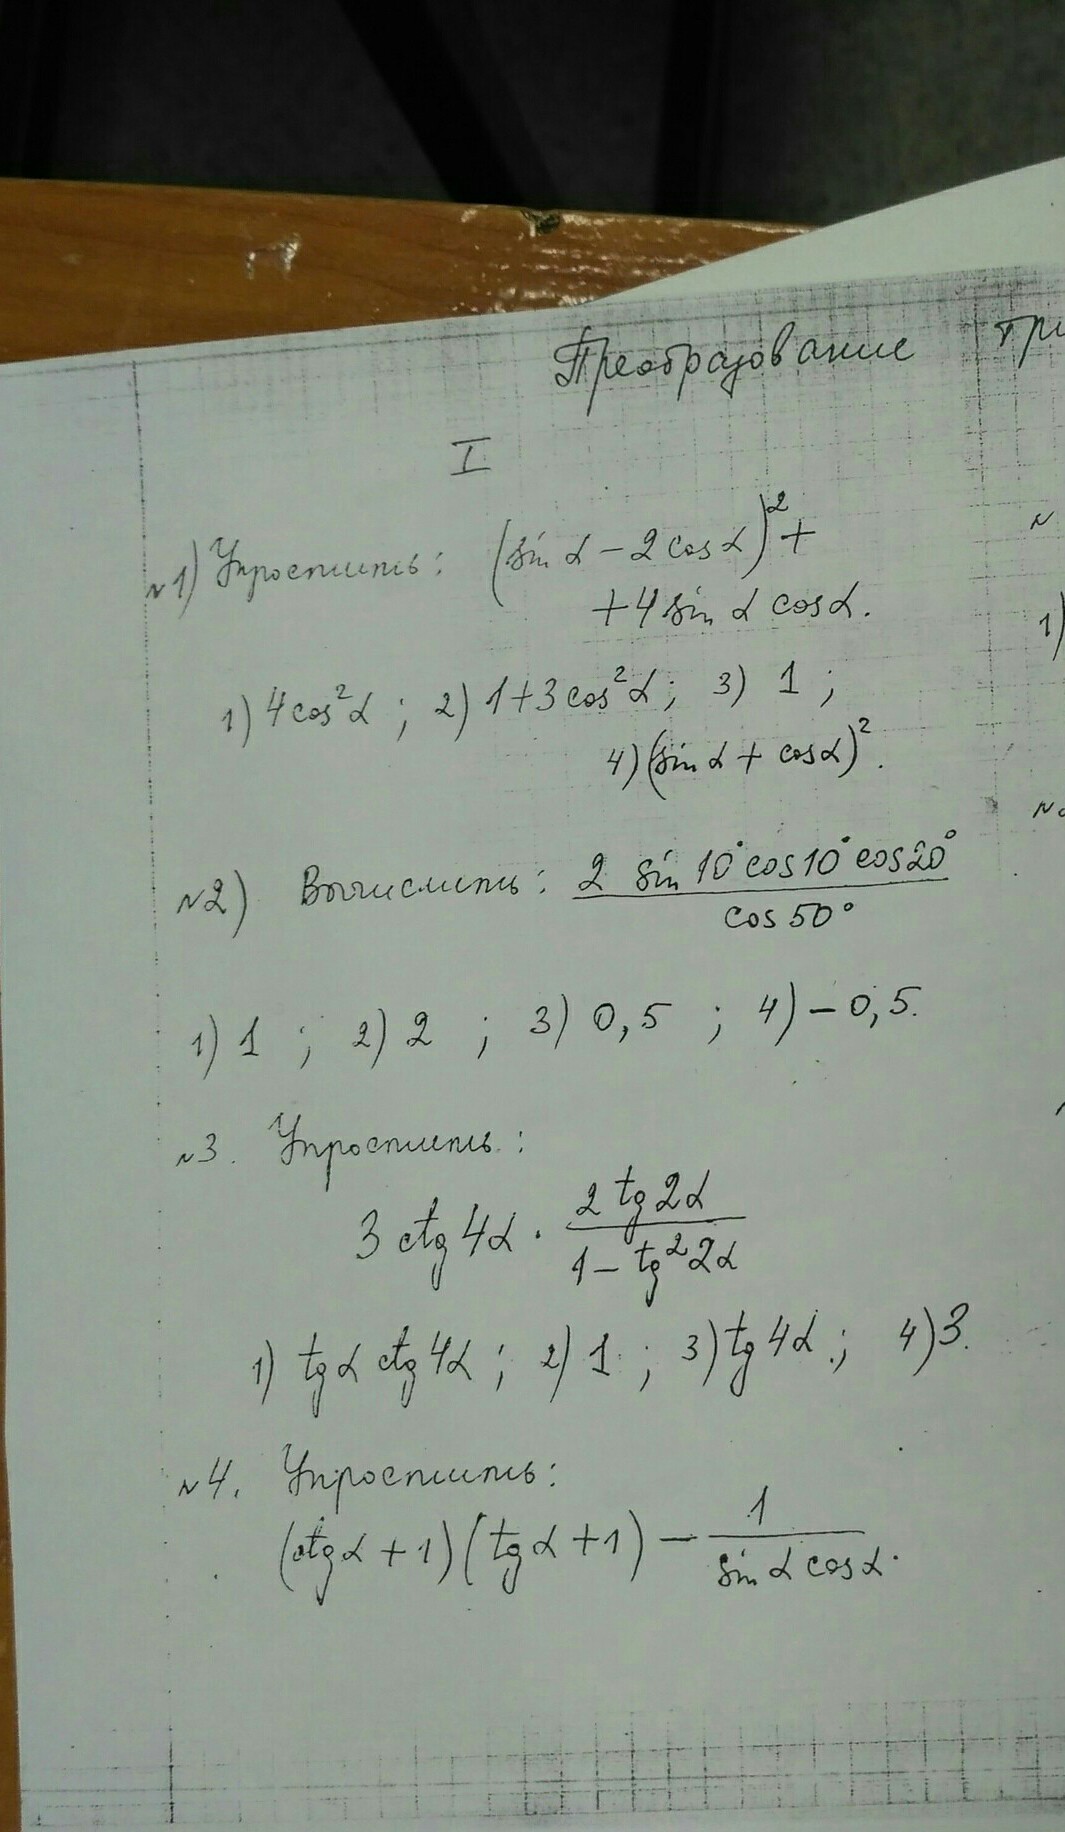 Преобразование три
I
№1) Упростить: (sin α – 2 cos α)² +
+ 4 sin α cos α.
1) 4 cos² α ; 2) 1 + 3 cos² α ; 3) 1 ;
4) (sin α + cos α)² .
№2) Вычислить: 2 sin 10° cos 10° cos 20° / cos 50°
1) 1 ; 2) 2 ; 3) 0,5 ; 4) – 0,5.
№3. Упростить :
3 ctg 4α · 2 tg 2α / 1 – tg² 2α
1) tg α ctg 4α ; 2) 1 ; 3) tg 4α ; 4) 3.
№4. Упростить:
(ctg α + 1) (tg α + 1) – 1 / sin α cos α .
№
1)
№